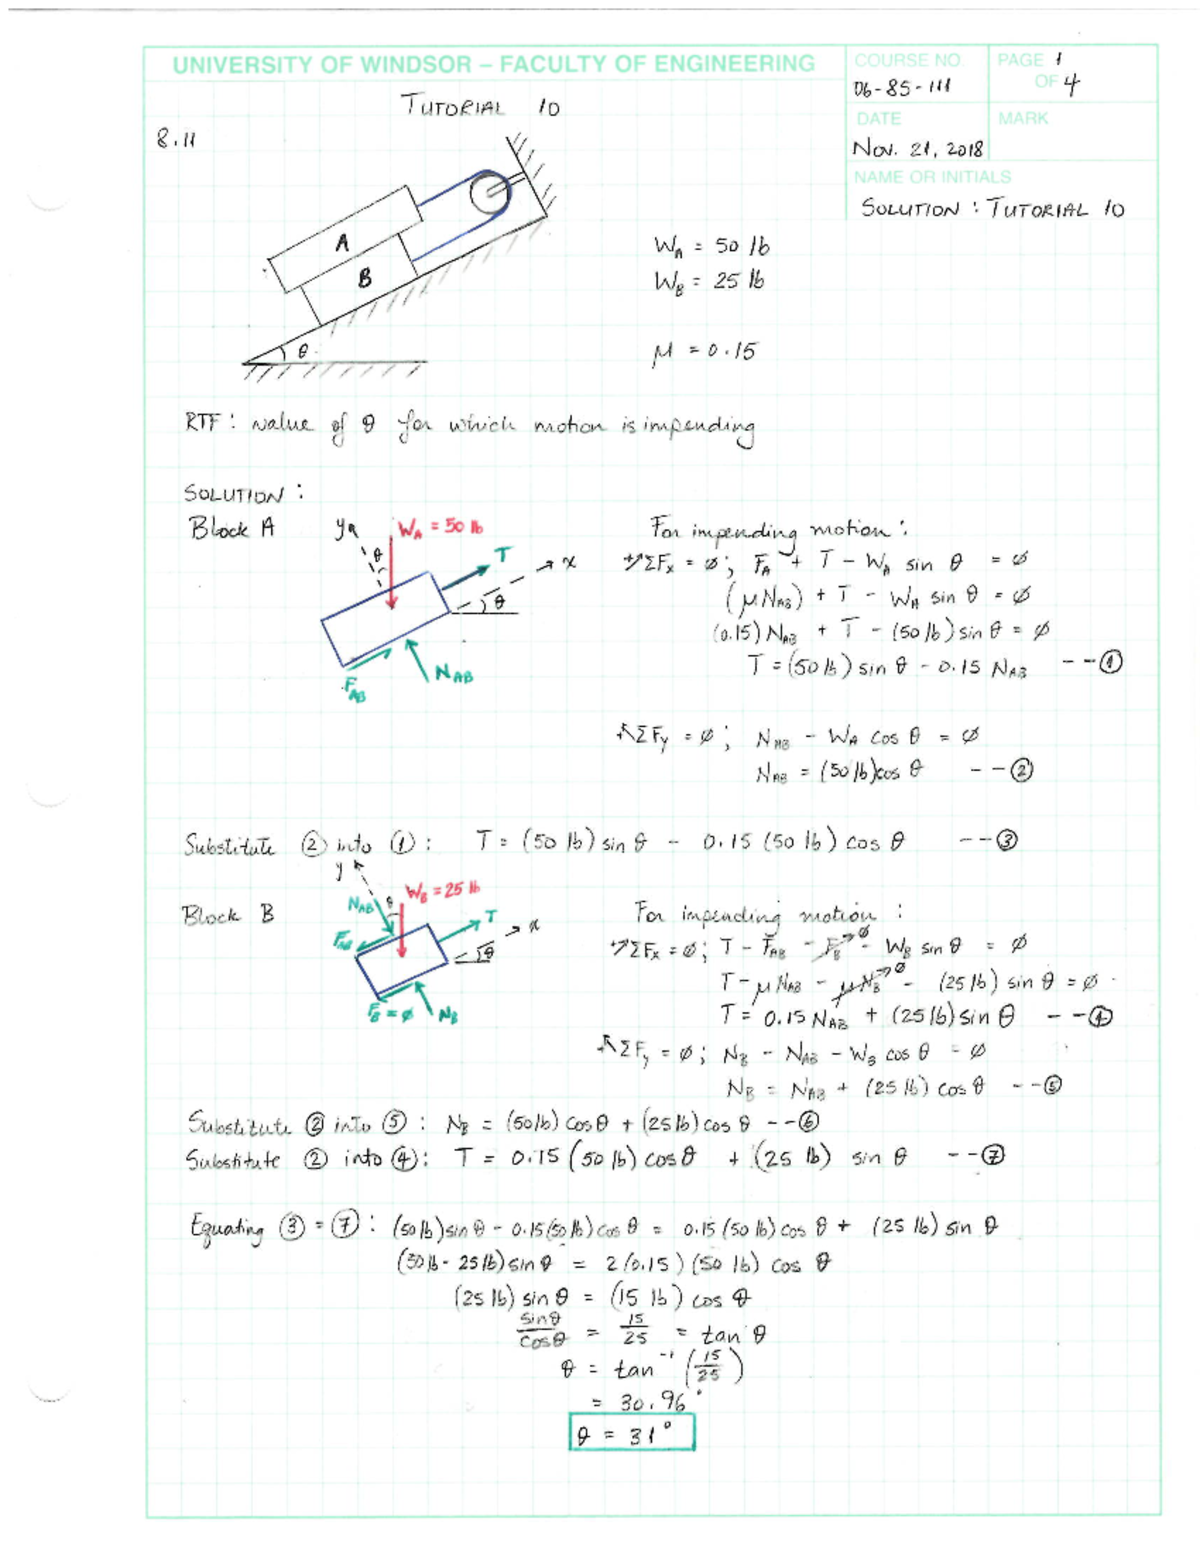 UNIVERSITY OF WINDSOR – FACULTY OF ENGINEERING
COURSE NO
06-85-111
PAGE 1
OF 4
DATE
Nov. 21, 2018
MARK
NAME OR INITIALS
SOLUTION : TUTORIAL 10
TUTORIAL 10
8.11
A
B
θ
W_A = 50 lb
W_B = 25 lb
μ = 0.15
RTF : value of θ for which motion is impending
SOLUTION :
Block A
y
θ
W_A = 50 lb
T
x
θ
F_AB
N_AB
For impending motion :
ΣFx = ø ; F_A + T - W_A sin θ = ø
(μN_AB) + T - W_A sin θ = ø
(0.15) N_AB + T - (50 lb) sin θ = ø
T = (50 lb) sin θ - 0.15 N_AB --①
ΣFy = ø ; N_AB - W_A cos θ = ø
N_AB = (50 lb)cos θ --②
Substitute ② into ① : T = (50 lb) sin θ - 0.15 (50 lb) cos θ --③
Block B
y
N_AB
θ
W_B = 25 lb
F_AB
T
x
θ
F_B = ø
N_B
For impending motion :
ΣFx = ø ; T - F_AB - F_B ø - W_B sin θ = ø
T - μ N_AB - μN_B ø - (25 lb) sin θ = ø
T = 0.15 N_AB + (25 lb) sin θ --④
ΣFy = ø ; N_B - N_AB - W_B cos θ = ø
N_B = N_AB + (25 lb) cos θ --⑤
Substitute ② into ⑤ : N_B = (50 lb) cos θ + (25 lb) cos θ --⑥
Substitute ② into ④ : T = 0.15 (50 lb) cos θ + (25 lb) sin θ --⑦
Equating ③ = ⑦ : (50 lb) sin θ - 0.15 (50 lb) cos θ = 0.15 (50 lb) cos θ + (25 lb) sin θ
(50 lb - 25 lb) sin θ = 2 (0.15) (50 lb) cos θ
(25 lb) sin θ = (15 lb) cos θ
sin θ / cos θ = 15/25 = tan θ
θ = tan⁻¹ (15/25)
= 30.96°
θ = 31°